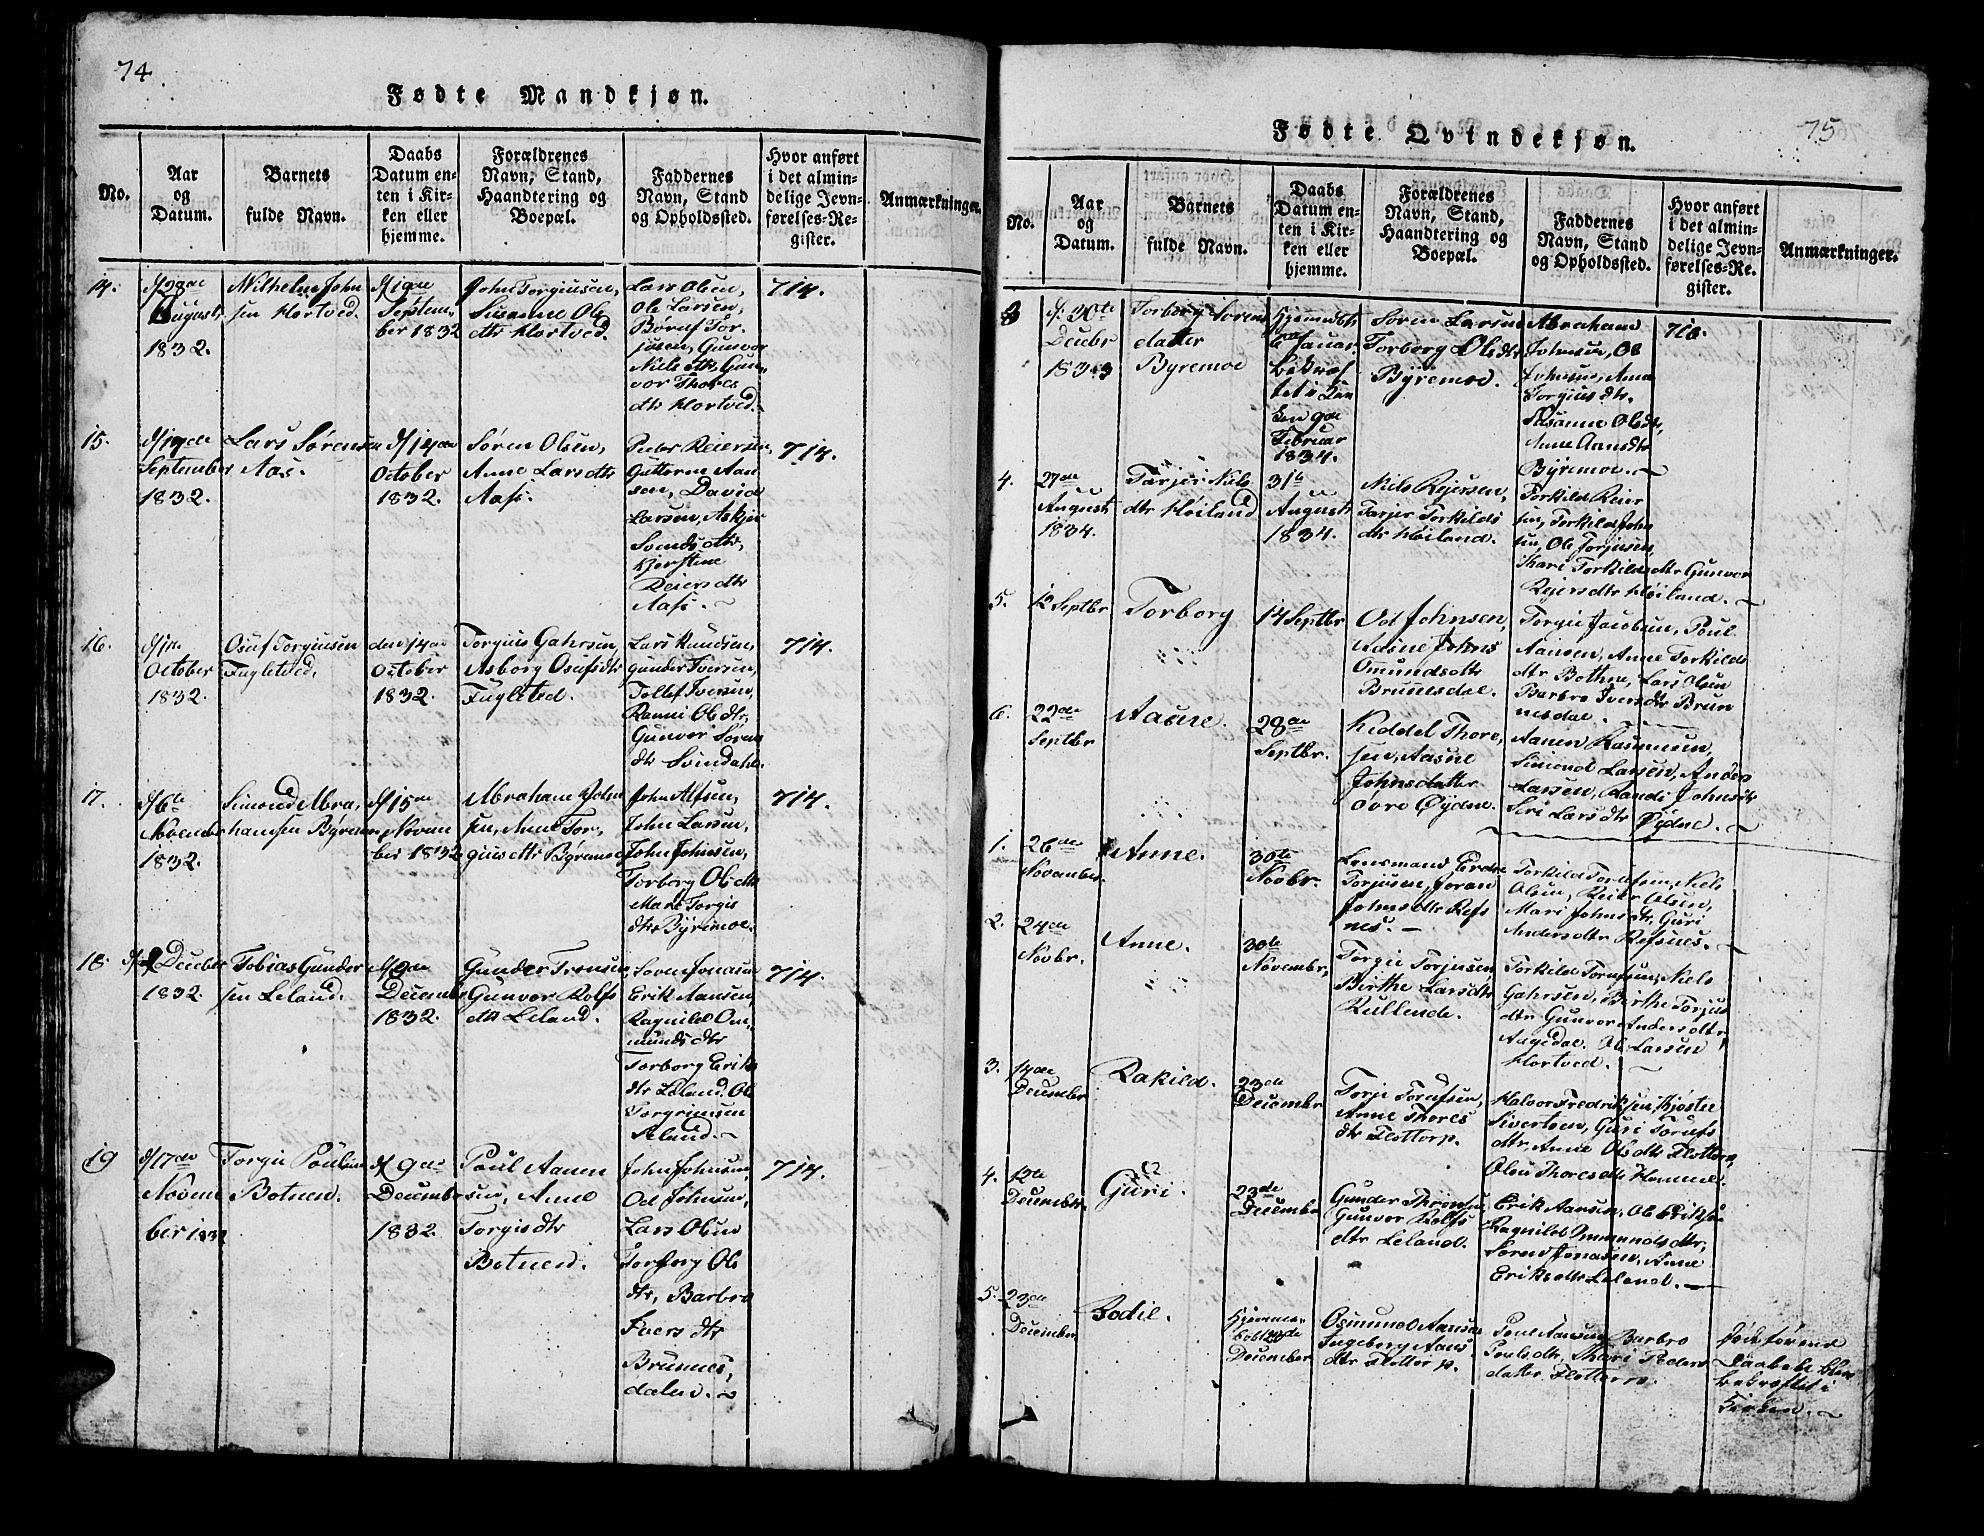 74
Fødte Mandkjøn.
No.
Aar
og
Datum.
Barnets
fulde Navn.
Daabs
Datum en-
ten i Kir-
ken eller
hjemme.
Forældrenes
Navn, Stand,
Haandtering og
Boepæl.
Faddernes
Navn, Stand
og Opholdssted.
Hvor anført
i det almin-
delige Jevn-
førelses-Re-
gister.
Anmærkninger.
14.
August
1832.
Wilhelm John
sen Hortved.
Septem
ber 1832
John Torgiusen,
Susanne Ols
dtr Hortved.
Lars Olsen,
Ole Larsen,
jusen, Gunvor
Niels dtr, Gun
vor Thores
dtr Hortved.
714.
15.
September
1832.
Lars Sørensen
Aas.
d/14de
October
1832.
Søren Olsen,
Anne Larsdtr
Aas.
Peder Reiersen,
Guttorm Aan
sen, David
Larsen, Askjer
Svendsdtr,
Kjerstine
Reiersdtr
Aas.
714.
16.
October
1832.
Osuf Torgiusen
Fugletved.
den 14de
October
1832.
Torgius Gahrsen,
Asborg Osufsdtr
Fugletved.
Lars Knudsen,
Gunder Iversen,
Tollef Iversen,
Ranni Ols dtr,
Gunvor Søren
dtr Svindahl.
714.
17.
d/6te
November
1832.
Simond Abra,
hamsen Byremoe
d/15de
Novem
ber 1832
Abraham John
sen, Anne Tor,
giusdtr Byremoe
John Alfsen,
John Larsen,
John Johnsen,
Torborg Olsdtr
Mari Torgis
dtr Byremoe.
714.
18.
December
1832.
Tobias Gunder
sen Leland.
December
1832.
Gunder Tronsen
Gunvor Rolfs
dtr Leland.
Søren Jonasen
Erik Aansen
Ragnild Om,
munds dtr
Torborg Eriks
dtr Leland. Ole
Leland.
714.
19
d/17de
Novem
ber 1832
Torgie Poulsen
Botnen.
d/9de
December
1832.
Poul Aanen
sen, Anne
Torgisdtr
Botnen.
John Johnsen,
Od Johnsen,
Lars Olsen
Torborg Ols
dtr, Barbro
Ivers dtr
Brunnes,
dalen.
714.
75
Fødte Qvindekjøn.
No.
Aar
og
Datum.
Barnets
fulde Navn.
Daabs
Datum en-
ten i Kir-
ken eller
hjemme.
Forældrenes
Navn, Stand,
Haandtering og
Boepæl.
Faddernes
Navn, Stand
og Opholdssted.
Hvor anført
i det almin-
delige Jevn-
førelses-Re-
gister.
Anmærkninger.
3
d. 30te
Decebr
1833
Torborg Sørens
datter
Byremoe
Hjemmedøbt
6te Januar.
bekræf
tet i Kir
ken 9de
Februar
1834.
Søren Larsen
Torborg Olsdtr
Byremoe.
Abraham
Johnsen, Ole
Johnsen, Anne
Torgius dtr.
Susanne Olsdtr,
Anne Aansdtr
Byremoe.
716.
4.
27de
August
1834.
Tarjer Niels
dtr Høiland
31te
August
1834.
Niels Reiersen,
Tarjer Torkilds
dtr Høiland.
Torkild Reier
sen, Torkild John
sen, Ole Torjusen,
Kari Torkildsdtr Gunvor
Reiersdtr Høiland.
5.
12 Septbr
Torborg
14 Septbr
Od Johnsen,
Aasne Johns
Omundsdtr
Brunnesdal.
Torgie Jacobsen, Poul
Aansen, Anne Torkilds
dtr Bothne, Lars Olsen
Barbro Iversdtr Brun
nesdal.
6.
22de
Septbr
Aasne.
28de
Septbr.
Kiddel Thore,
sen, Aasne
Johnsdatter
øvre Øydne.
Aanen Rasmusen,
Simond Larsen, Anders
Larsen, Randi Johnsdtr
Siri Larsdtr Øydne.
1.
26de
November.
Anne.
30te
Novbr.
Lensmand Peder
Torjusen, Joran
Johnsdtr Refs
nes.
Torkild Torufsen, Niels
Olsen, Reier Olsen,
Mari Johnsdtr, Guri
Andersdtr Refsnes.
2.
24de
Novbr.
Anne.
30te
November,
Torgie Torjusen
Birthe Larsdtr
Kullende.
Torkild Torufsen, Niels
Gahrsen, Birthe Torjus
dtr Gunvor Andersdtr
Augedal. Ole Larsen
Hortved.
3.
14de
December
Rakild.
23de
December
Torje Torufsen,
Anne Thores
dtr Flottorp.
Halvor Fredriksen, Kjostel
Sivertsen, Guri Torufs
dtr Anne Olsdtr Flottorp,
Olen Thoresdtr Homme.
4.
12te
December.
Guri.
23de
December
Gunder Thronsen
Gunvor Rolfs
dtr Leland.
Erik Aansen, Ole Eriksen
Ragnild Ommundsdtr,
Søren Jonasen, Anne
Eriksdtr Leland.
5.
23de
December
Bodil.
Hjemme
December
Osmund Aansen
Ingeborg Aans
dtr Flottorp.
Poul Aansen Barbro
Poulsdtr, Thari Peders
datter Flottorp.
Død førend
Daaben blev
bekræftet i
Kirken.